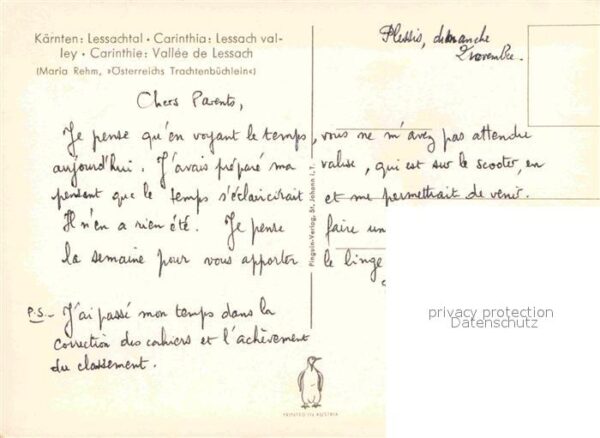 Kärnten: Lessachtal • Carinthia: Lessach val-
ley • Carinthie: Vallée de Lessach
(Maria Rehm, »Österreichs Trachtenbüchlein«)
Plessis, dimanche
2 novembre.
Chers Parents,
Je pense qu'en voyant le temps, vous ne m'avez pas attendu
aujourd'hui. J'avais préparé ma valise, qui est sur le scooter, en
pensant que le temps s'éclaircirait et me permettrait de venir.
Il n'en a rien été. Je pense faire un
la semaine pour vous apporter le linge
P.S. - J'ai passé mon temps dans la
correction des cahiers et l'achèvement
du classement.
Pinguin-Verlag, St. Johann i. T.
PRINTED IN AUSTRIA
privacy protection
Datenschutz